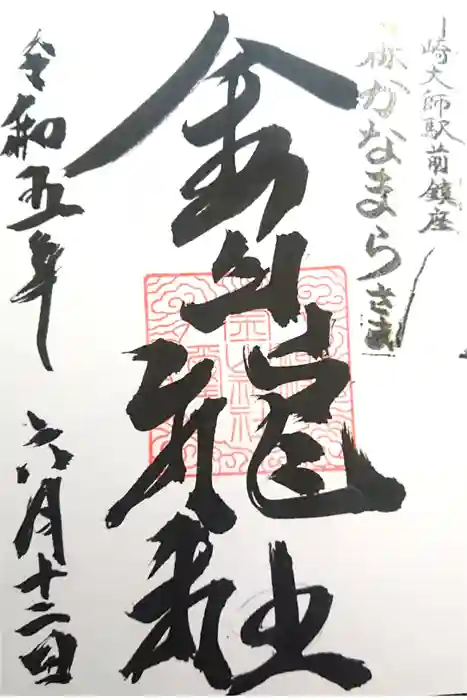 川崎大師駅前鎮座
かなまらさま
金山神社
令和五年
六月十二日